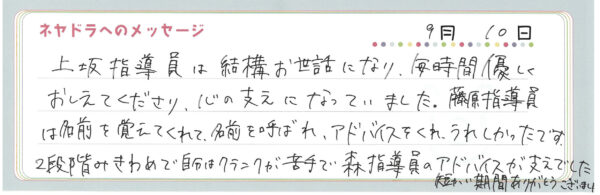 ネヤドラへのメッセージ
9月 10日
上坂指導員は結構お世話になり、毎時間優しく
おしえてくださり、心の支えになっていました。藤原指導員
は名前を覚えてくれて、名前を呼ばれ、アドバイスをくれ、うれしかったです。
2段階みきわめで自分はクランクが苦手で森指導員のアドバイスが支えでした
短い期間ありがとうございました